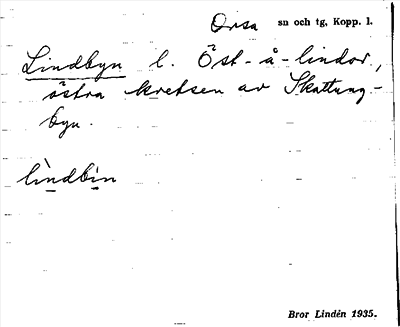 Orsa sn och tg, Kopp. l.
Lindbyn l. Öst-å-lindor,
östra kretsen av Skattung-
byn.
lìndbin
Bror Lindén 1935.